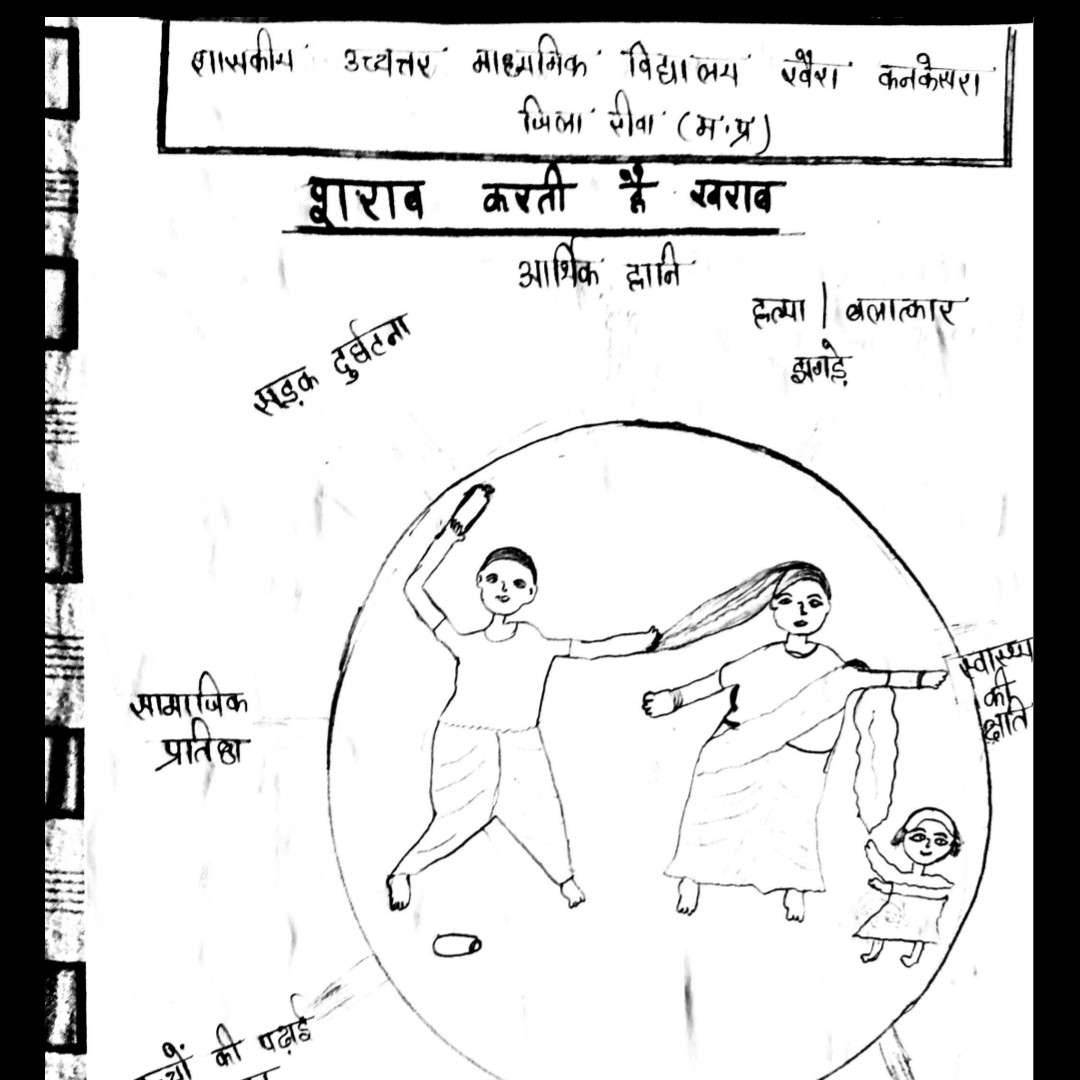 शासकीय उच्चत्तर माध्यमिक विद्यालय खैरा कनकेसरा
जिला रीवा (म.प्र)
शराब करती है खराब
आर्थिक हानि
हत्या | बलात्कार
झगड़े
सड़क दुर्घटना
स्वास्थ्य
की
क्षति
सामाजिक
प्रतिष्ठा
की पढ़ाई